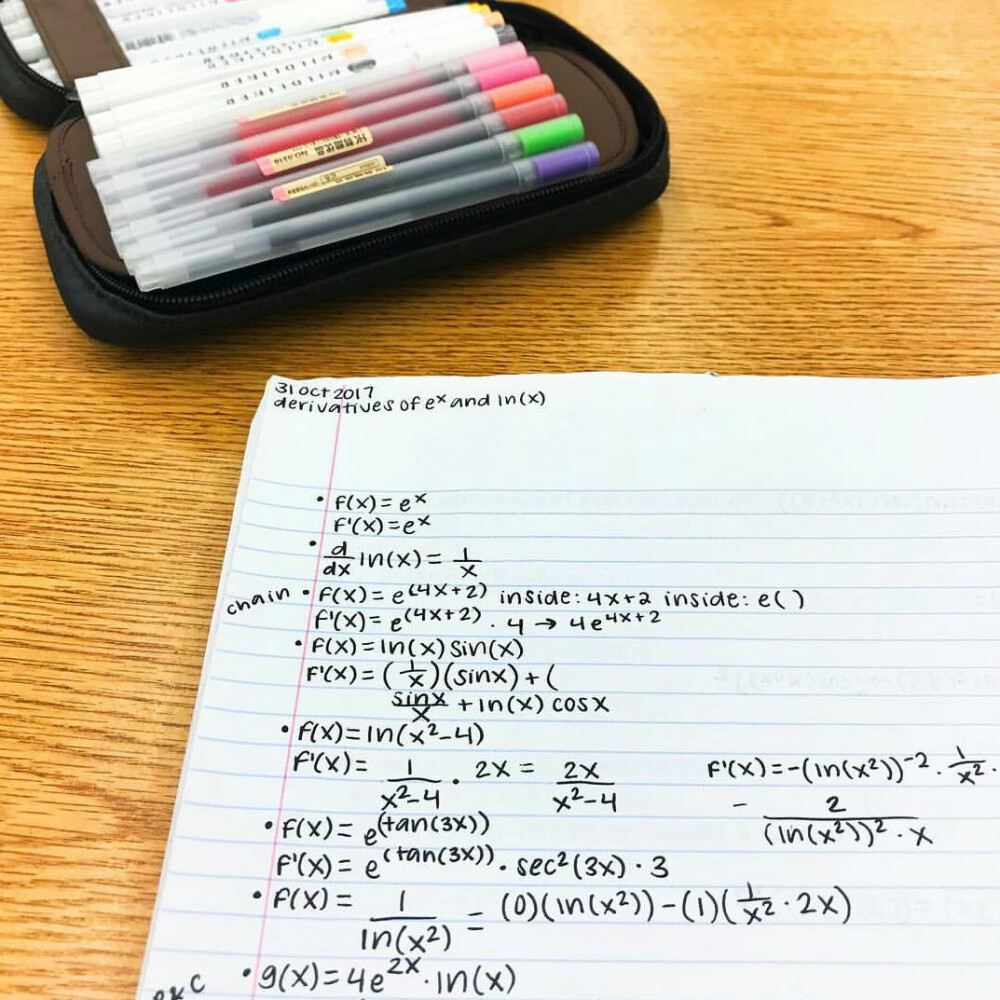 MILDLINER
MILDLINER
NO.0316
31 Oct 2017
derivatives of eˣ and ln(x)
• f(x) = eˣ
f'(x) = eˣ
• d/dx ln(x) = 1/x
chain • f(x) = e^(4x+2) inside: 4x+2 inside: e( )
f'(x) = e^(4x+2) · 4 → 4e^4x+2
• f(x) = ln(x) sin(x)
f'(x) = (1/x)(sinx) + (
sinx/x + ln(x) cosx
• f(x) = ln(x²-4)
f'(x) = 1/x²-4 · 2x = 2x/x²-4
f'(x) = -(ln(x²))⁻² · 1/x² ·
- 2/(ln(x²))² · x
• f(x) = e^(tan(3x))
f'(x) = e^(tan(3x)) · sec²(3x) · 3
• f(x) = 1/ln(x²) = (0)(ln(x²)) - (1)(1/x² · 2x)
• g(x) = 4e^2x · ln(x)